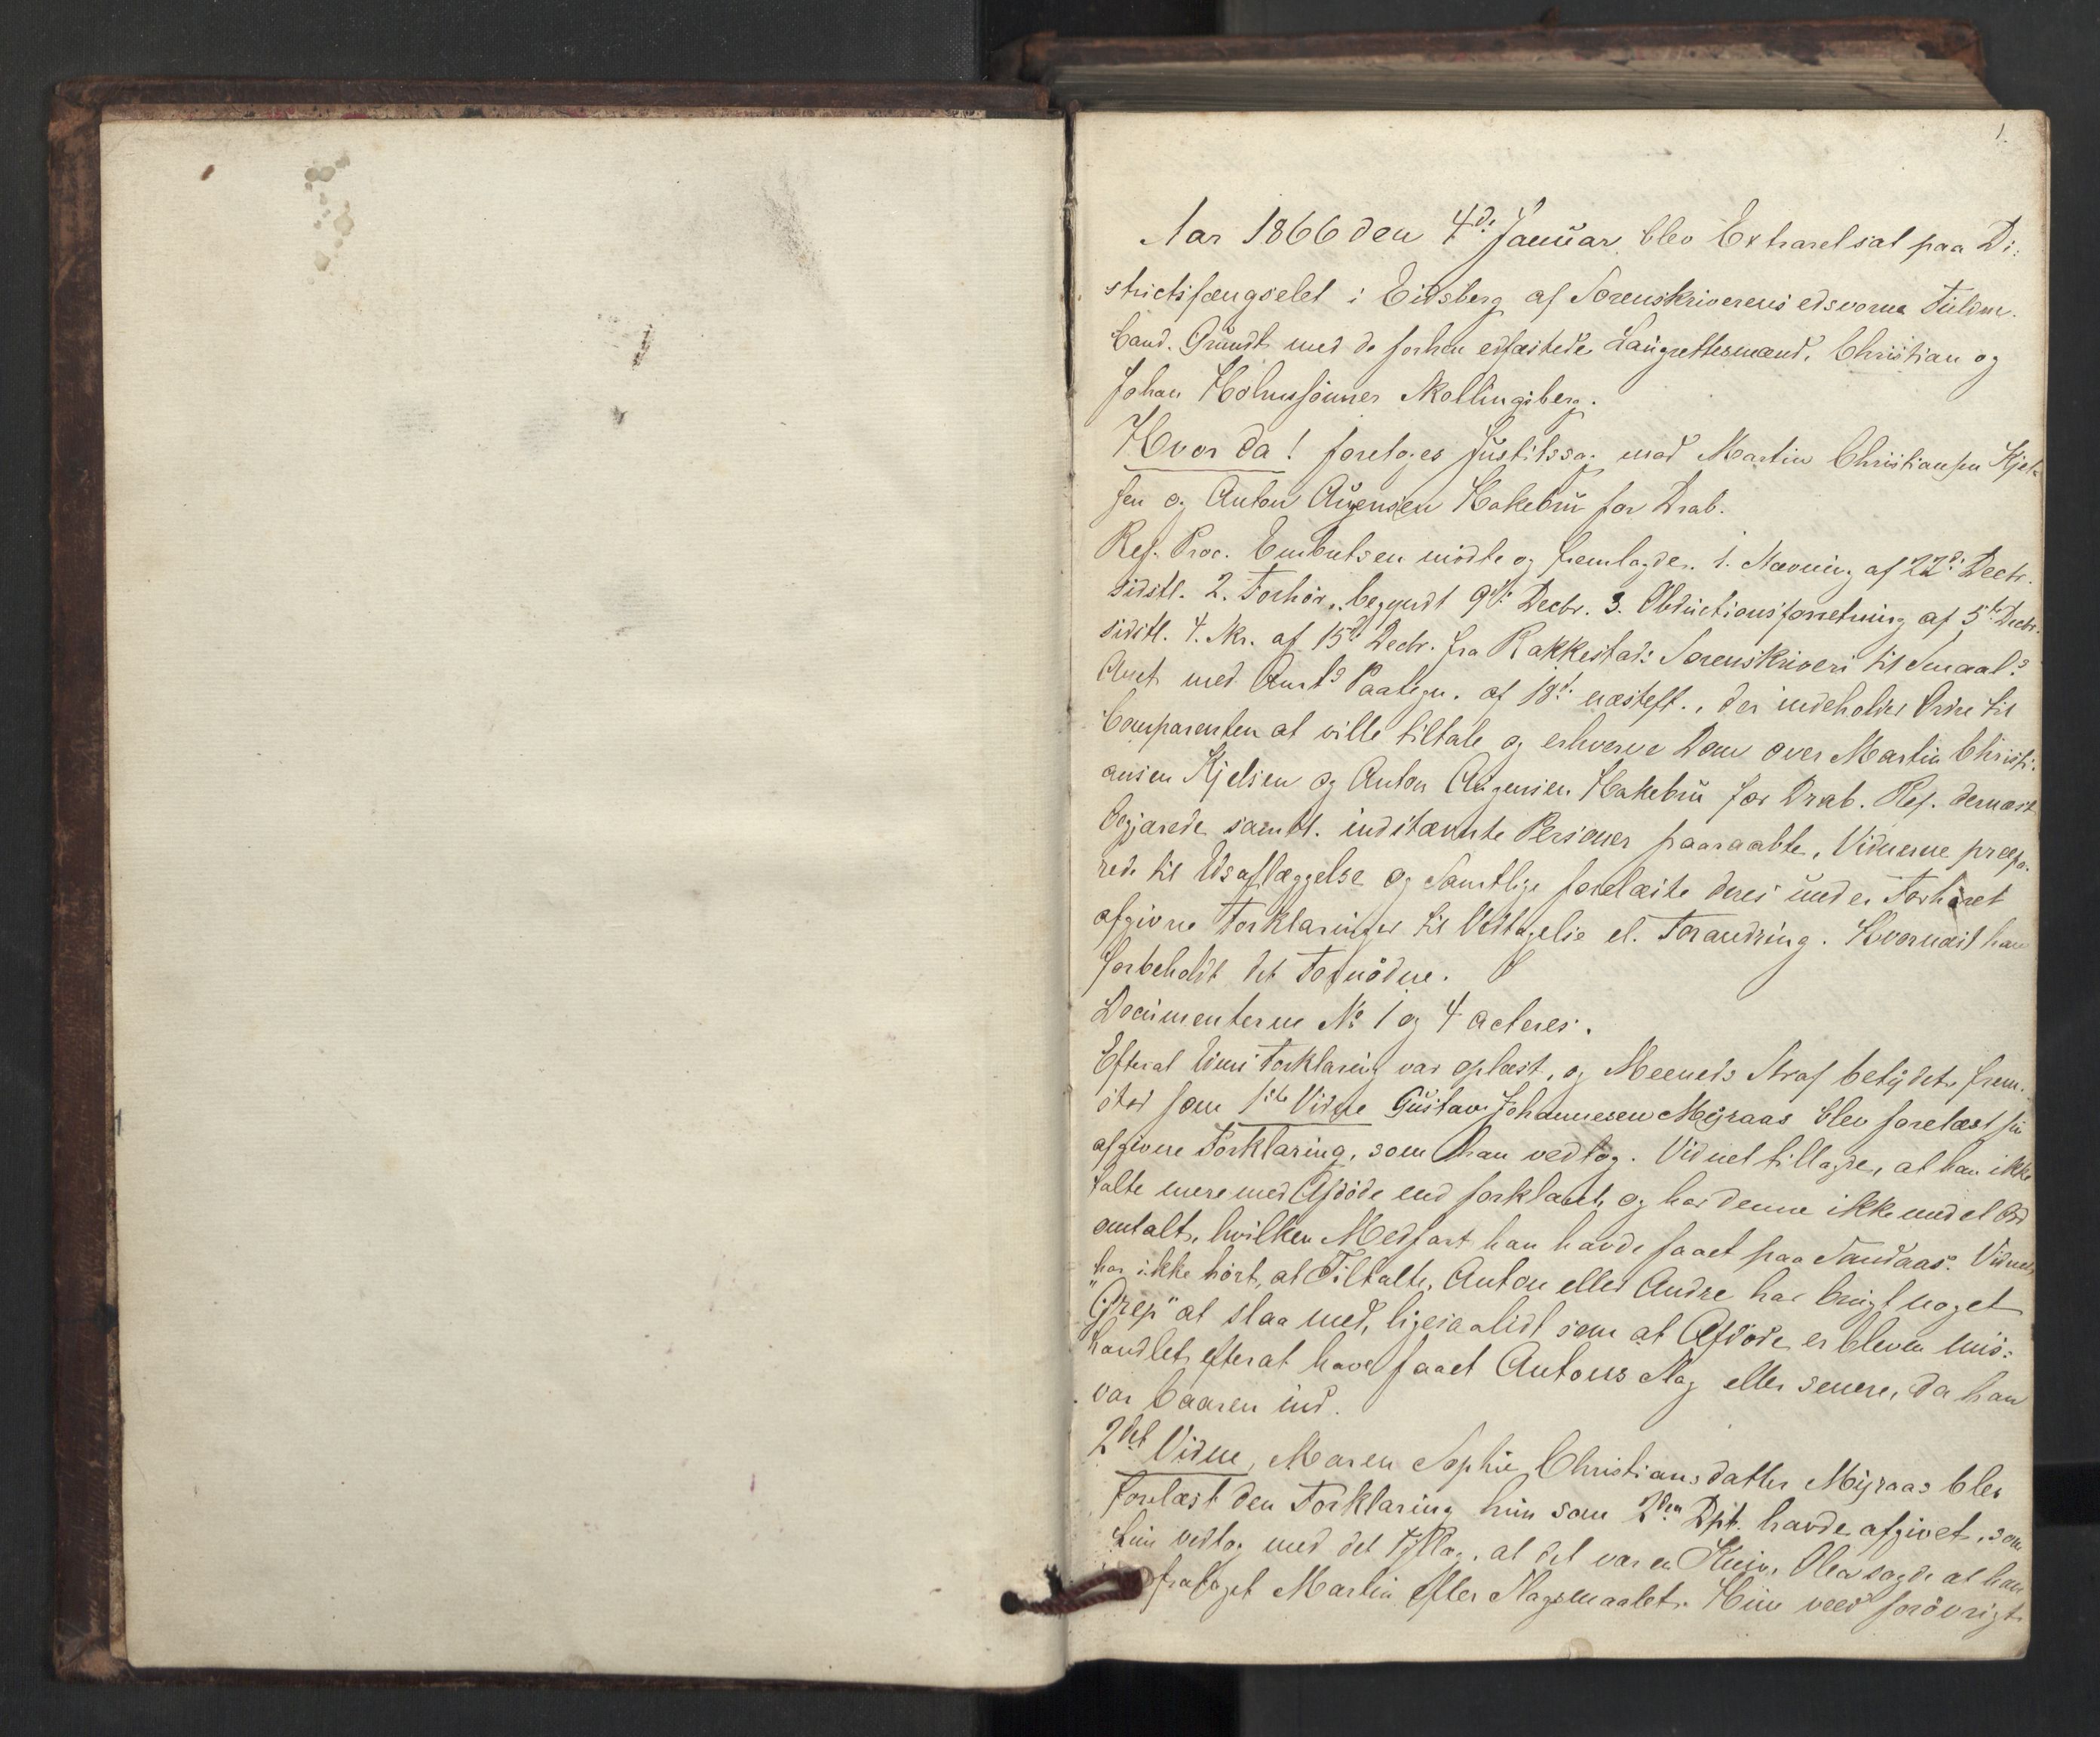 1.
Aar 1866 den 4de Januar blev Extraret sat paa Di-
strictsfængselet i Eidsberg af Sorenskriverens edsvorne Fuldm.
Cand. Grundt med de forhen edfæstede Laugrettesmænd, Christian og
Johan Holmsønner Mollingsberg.
Hvor da! foretoges Justitssag mod Martin Christiansen Kjel-
sen og Anton Augensen Hakebru for Drab.
Ref. Proc. Embretsen mødte og fremlagde. 1. Stævning af 22de Decbr.
sidstl. 2. Forhør, begyndt 9de Decbr. 3. Obductionsforretning af 5te Decbr.
sidstl. 4. Skr. af 15de Decbr. fra Rakkestads Sorenskriveri til Smaal.s
Amt med Amts Paategn. af 18de næsteft., der indeholder Ordre til
Comparenten at ville tiltale og erhverve Dom over Martin Christi-
ansen Kjelsen og Anton Augensen Hakebru for Drab. Ref. dernæst
begjærede samtl. indstævnte Personer paaraabte, Vidnerne præpa-
rede til Edsaflæggelse og Samtlige forelæste deres under Forhøret
afgivne Forklaringer til Vedtagelse el. Forandring. Hvornæst han
forbeholdt det Fornødne.
Documenterne No 1 og 4 acteres.
Efterat Edens Forklaring var oplæst, og Meeneds Straf betydet, frem-
stod som 1ste Vidne Gustav Johannesen Myraas blev forelæst sin
afgivne Forklaring, som han vedtog. Vidnet tillagde, at han ikke
talte mere med Afdøde end forklaret, og har denne ikke med et Ord
omtalt, hvilken Medfart han havde faaet paa Sandaas. Vidnet
har ikke hørt, at Tiltalte, Anton eller Andre har brugt noget
"Grep" at slaa med, ligesaalidt som at Afdøde er bleven mis-
handlet efterat have faaet Antons Slag eller senere, da han
var baaren ind.
2det Vidne, Maren Sophie Christiansdatter Myraas blev
forelæst den Forklaring hun som 2den Dpt. havde afgivet, som
hun vedtog med det Tillæg, at det var en Kniv, Olea sagde at have
frataget Martin efter Slagsmaalet. Hun veed forøvrigt